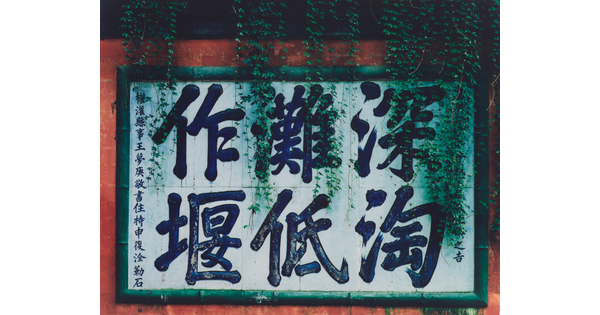 之吉
深淘
灘低
作堰
灌縣事王夢庚敬書住持申復淦勒石